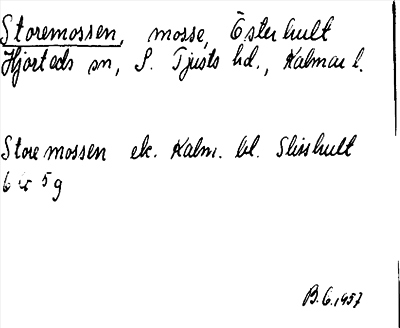 Storemossen, mosse, Österhult
Hjorteds sn, S. Tjusts hd., Kalmar l.
Store mossen ek. Kalm. bl. Slisshult
6 5 g
B.G. 1957